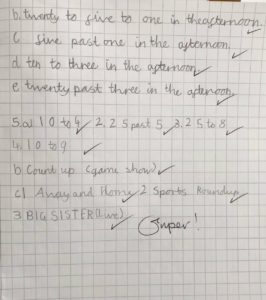 b. twenty to five to one in the afternoon.
c five past one in the afternoon.
d ten to three in the afternoon
e twenty past three in the afternoon
5.a1 10 to 9 2, 25 past 5 3, 25 to 8
4. 10 to 9
b Count up (game show)
c1 and 2 Sports Roundup
3 BIG SISTER (Live)
Super!